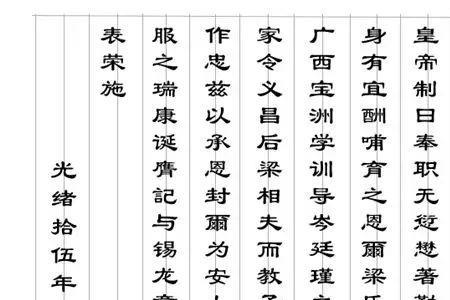 皇帝制曰奉职无愆懋著勤
身有宜酬哺育之恩爾梁氏
广西宝洲学训导岑廷瑾之
家令义昌后梁相夫而教子
作忠兹以承恩封爾为安人
服之瑞康诞膺記与锡龙章
表荣施
光绪拾伍年